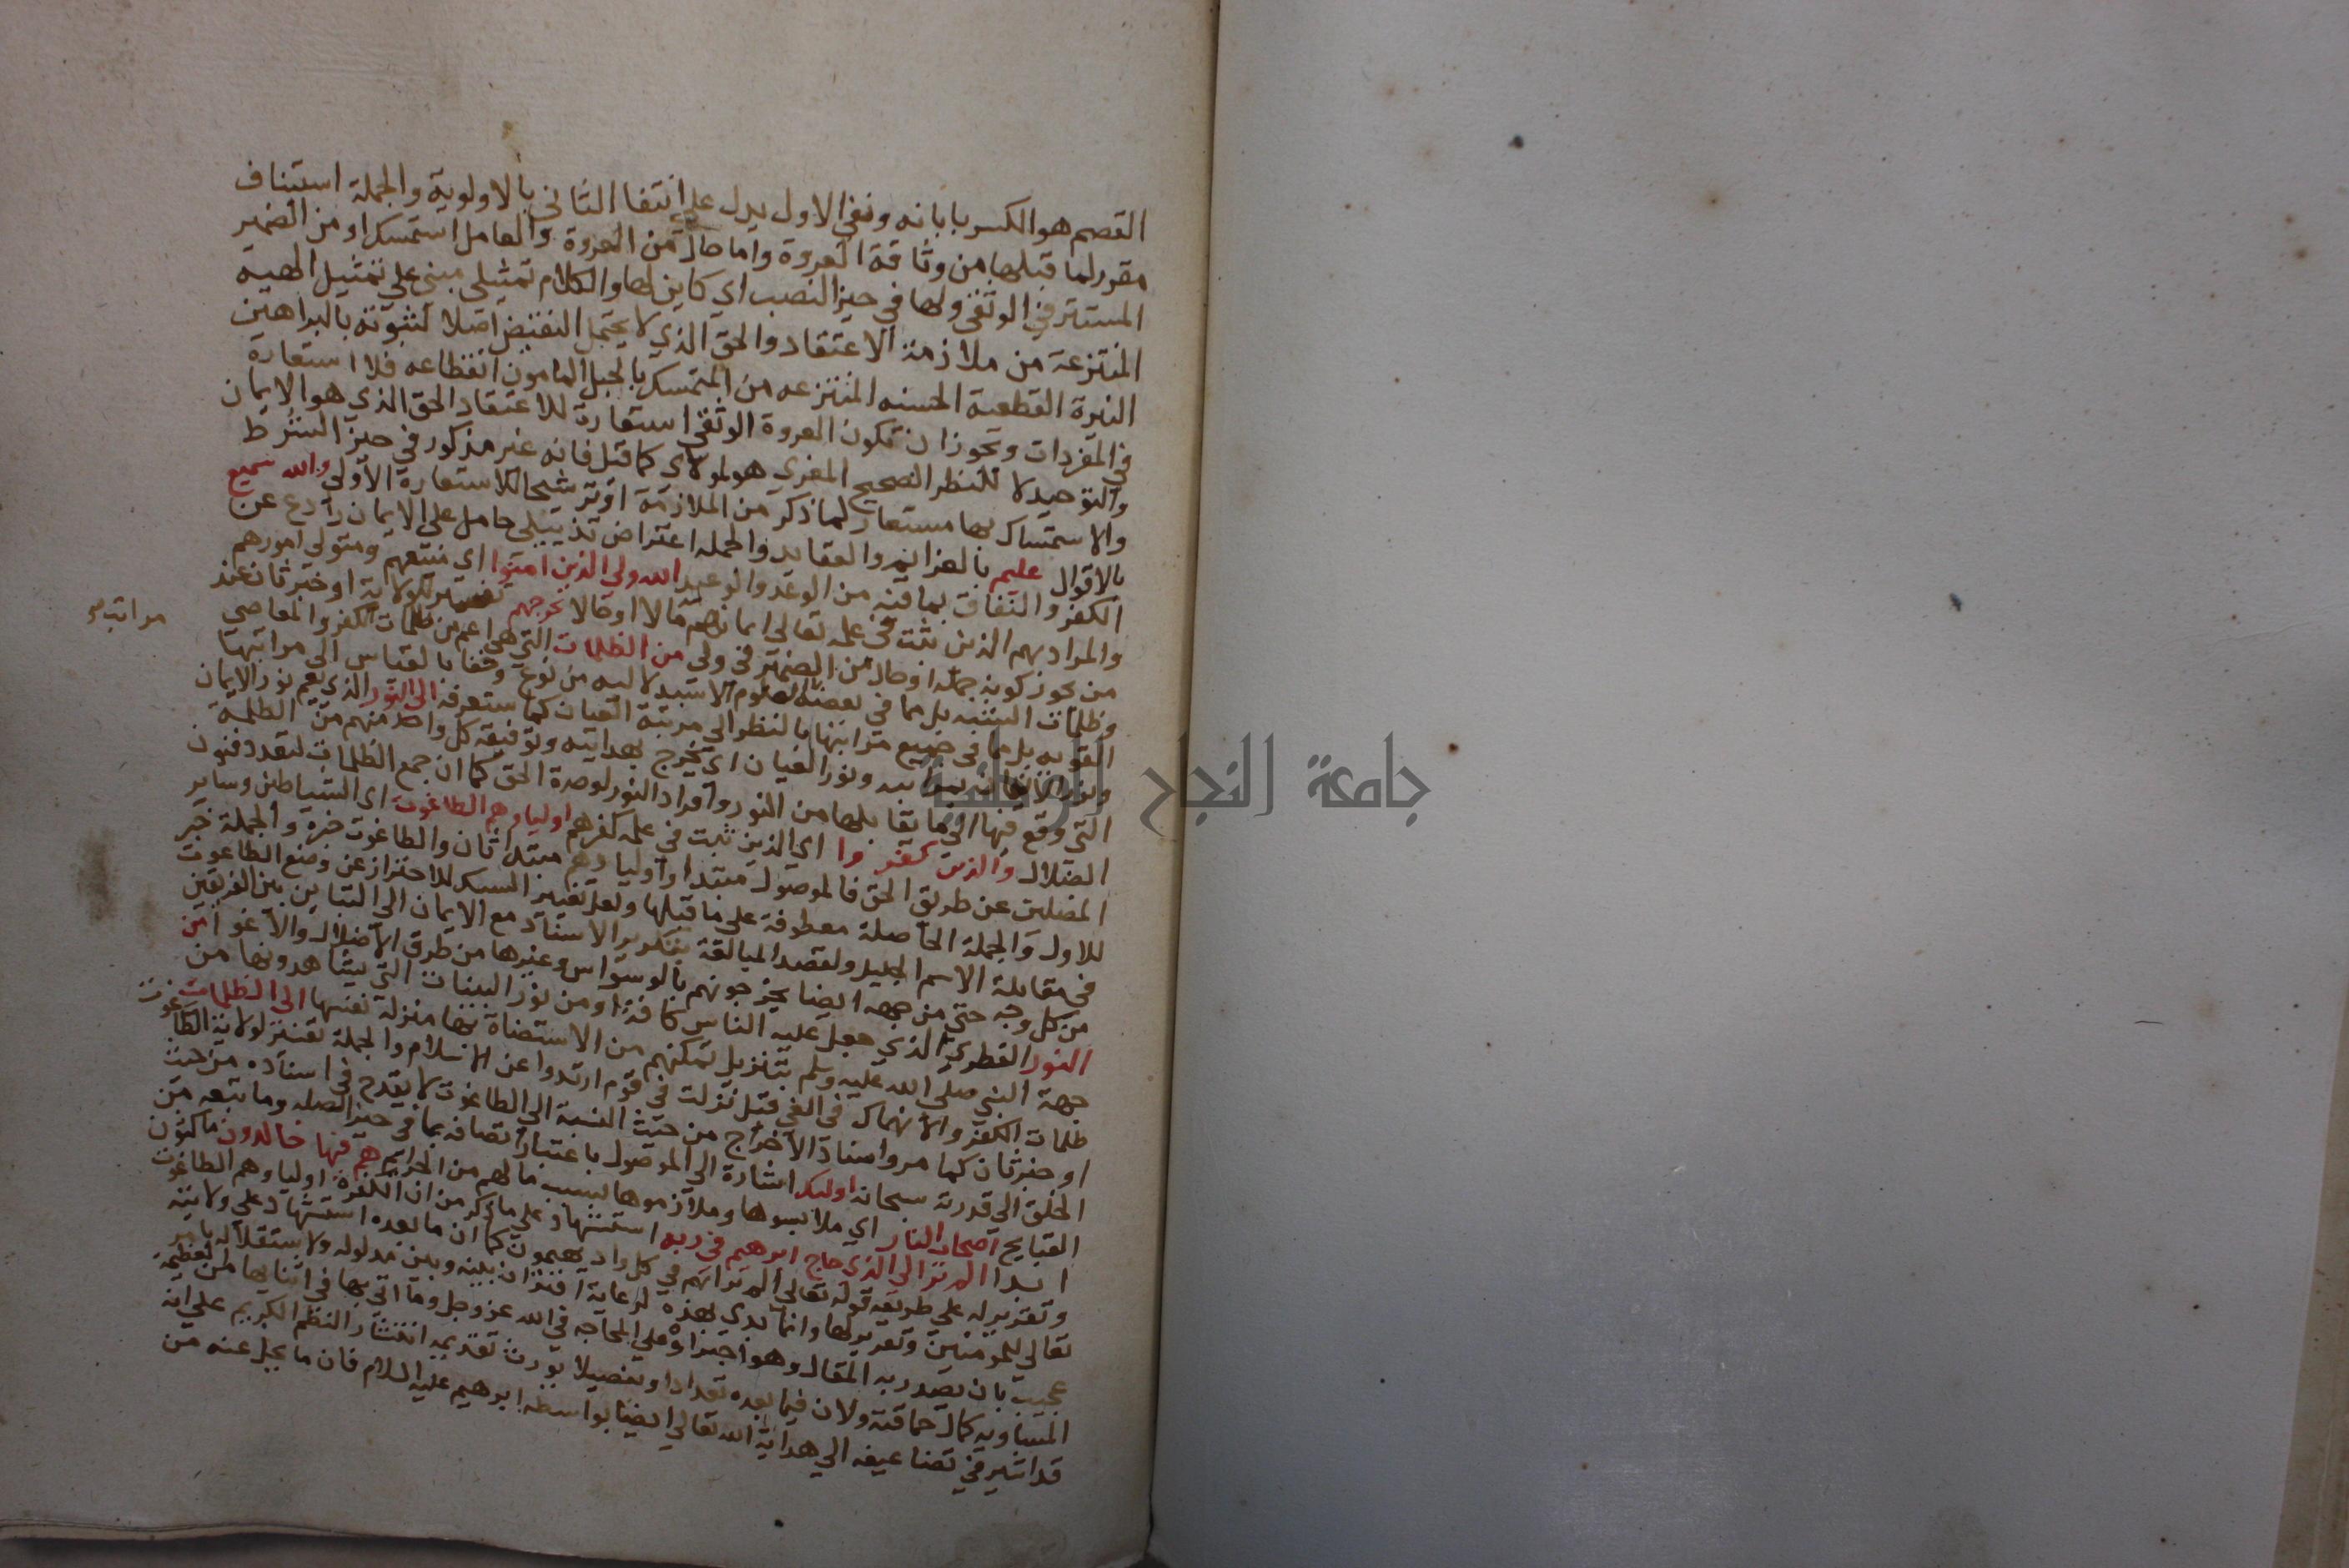 القصم هو الكسر بابانه ونفي الاول يدل علي انتفا الثاني بالاولوية والجملة استيناف
مقرر لما قبلها من وثاقة العروة واما حال من العروة والعامل استمسك او من الضمير
المستتر في الوثقي ولها في حيز النصب اي كاين لها والكلام تمثيلي مبني علي تمثيل الهيه
المنتزعة من ملازمة الاعتقاد والحق الذي لا يحتمل النقيض اصلا لثبوته بالبراهين
النيرة القطعية الحسنه المنتزعه من المتمسك بالحبل المامون انقطاعه فلا استعارة
في المفردات ويجوز ان تكون العروة الوثقي استعارة للاعتقاد الحق الذي هو الايمان
والتوحيد لا للنظر الصحيح المفدي هو لمولاي كما قيل فانه غير مذكور في حيز الشرط
والاستمساك بها مستعار لما ذكر من الملازمة او ترشيحا للاستعارة الاولي والله سميع
بالاقوال عليم بالعزايم والعقايد والجمله اعتراض تذييلي حامل علي الايمان رادع عن
الكفر والنفاق بما فيه من الوعد والوعيد الله ولي الذين امنوا اي معينهم ومتولي امورهم
والمراد بهم الذين ثبت في علمه تعالي ايمانهم مالا او حالا يخرجهم تفسير للولاية او خبر ثان عند
من يجوز كونه جملة او حال من الضمير في ولي من الظلمات التي هي اعم من ظلمات الكفر والمعاصي
وظلمات الشبه بل مما في بعض العلوم الاستدلاليه من نوع وخفا بالقياس الي مراتبها
القويه بل مما في جميع مراتبها بالنظر الي مرتبة العيان كما ستعرفه الي النور الذي يعم نور الايمان
ونور الايقان بمراتبه ونور العيان اي يخرج بهدايته وتوفيقه كل واحد منهم من الظلمة
مراتبه
التي وقع فيها الي ما يقابلها من النور وافراد النور لوحدة الحق كما ان جمع الظلمات لتعدد فنون
الضلال والذين كفروا اي الذين ثبت في علمه كفرهم اولياوهم الطاغوت اي الشياطين وساير
المضلين عن طريق الحق فالموصول مبتدا واولياوهم مبتدا ثان والطاغوت خبره والجملة خبر
للاول والجملة الحاصلة معطوفة علي ما قبلها ولعل تغيير السبك للاحتراز عن وضع الطاغوت
في مقابلة الاسم الجليل ولقصد المبالغة بتكرير الاسناد مع الايمان الي التباين بين الفريقين
من كل وجه حتي من جهه ايضا يخرجونهم بالوسواس وغيرها من طرق الاضلال والاغوا من
النور الفطري الذي جبل عليه الناس كافة او من نور البينات التي يشاهدونها من
جهة النبي صلي الله عليه وسلم بتنزيل تمكنهم من الاستضاة بها منزلة نفسها الي الظلمات
ظلمات الكفر والانهماك في الغي قيل نزلت في قوم ارتدوا عن الاسلام والجملة تفسير لولاية الطاغوت
او خبر ثان كما مر واسناد الاخراج من حيث النسبة الي الطاغوت لا يقدح في اسناده من حيث
الخلق الي قدرته سبحانه اوليك اشارة الي الموصول باعتبار اتصافه بما في حيز الصله وما يتبعه من
القبايح اصحاب النار اي ملابسوها وملازموها بسبب مالهم من الجرايم هم فيها خالدون ماكثون
ابدا الم تر الي الذي حاج ابرهيم في ربه استشهاد علي ما ذكر من ان الكفرة اولياوهم الطاغوت
وتقرير له علي طريقه قوله تعالي الم تر انهم في كل واد يهيمون كما ان ما بعده استشهاد علي ولايته
تعالي للمومنين وتقرير لها وانما بدي بهذه لرعاية اقتران بينه وبين مدلوله ولاستقلاله بامر
عجيب بان يصدر به المقال وهو اجتراوه علي المحاجه في الله عز وجل وما اتي بها في اثنايها من العظيمة
المناويه كمال حماقته ولان فيما بعده تعدادا وتفصيلا يورث تقديمه انتشار النظم الكريم علي انه
قد اشير في تضاعيفه الي هداية الله تعالي ايضا بواسطة ابرهيم عليه السلام فان ما يحكي عنه من
جامعة النجاح الوطنية